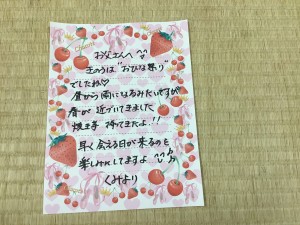 お父さんへ
きのうは"おひな祭り"
でしたね♡
昼から雨になるみたいですが
春が近づいてきました
焼王子 持ってきたよ!!
早く会える日が来るのを
楽しみにしてますよ
くみより